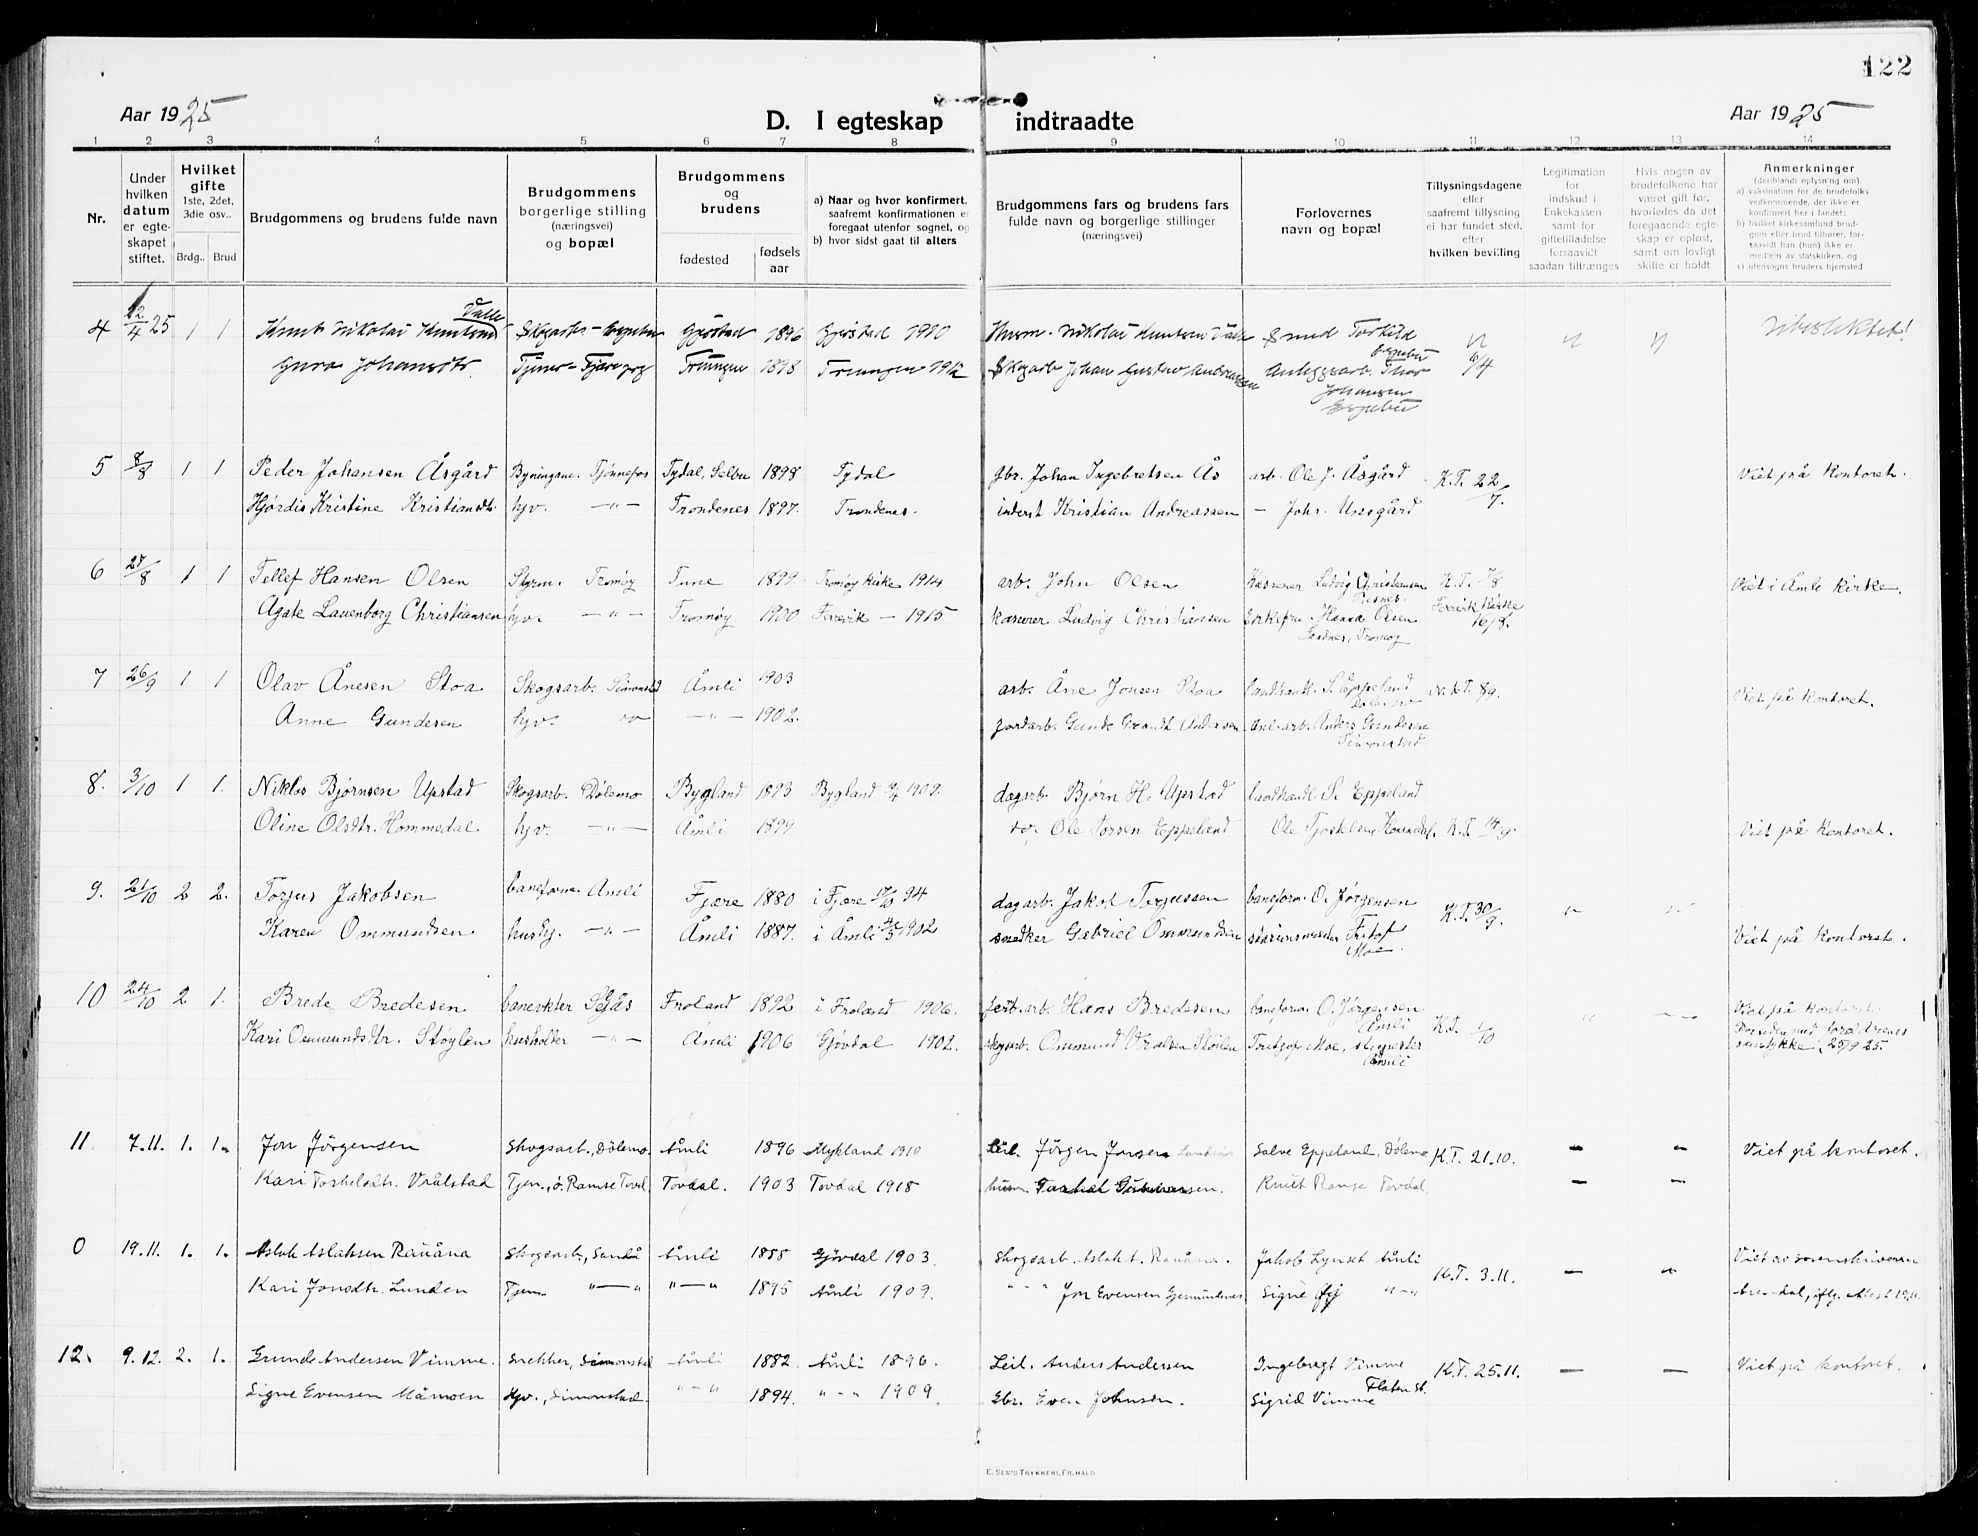 122
Aar 1925
D. I egteskap indtraadte
Aar 1925
1 2 3 4 5 6 7 8 9 10 11 12 13 14
Nr.
Under hvilken datum er egteskapet stiftet.
Hvilket gifte 1ste, 2det, 3die osv..
Brdg.. Brud
Brudgommens og brudens fulde navn
Brudgommens borgerlige stilling (næringsvei) og bopæl
Brudgommens og brudens
fødested
fødselsaar
a) Naar og hvor konfirmert, saafremt konfirmationen er foregaat utenfor sognet, og
b) hvor sidst gaat til alters
Brudgommens fars og brudens fars fulde navn og borgerlige stillinger (næringsvei)
Forlovernes navn og bopæl
Tillysningsdagene eller saafremt tillysning ei har fundet sted, efter hvilken bevilling
Legitimation for indskud i Enkekassen samt for giftetilladelse forsaavidt saadan tiltrænges
Hvis nogen av brudefolkene har været gift før, hvorledes da det foregaaende egteskap er opløst, samt om lovligt skifte er holdt
Anmerkninger
(deriblandt oplysning om)
a) vaksination for de brudefolks vedkommende, der ikke er konfirmert her i landet;
b) hvilket kirkesamfund brudgom eller brud tilhører, forsaavidt han (hun) ikke er medlem av statskirken, og
c) utensogns bruders hjemsted
4 12/4 25 1 1 Knut Nikolai Knutsen Valle Gjerstad 1896 Gjerstad 1910 Husm. Nikolai Knutsen Valle Smed Torkild
Gura Johansdtr. Treungen 1898 Treungen 1912 Skogarb. Johan Gustav Andreassen Anleggsarb. Thor Johansen 6/4
5 8/8 1 1 Peder Johansen Åsgård Bygningssn. Tjønnefos Tydal, Selbu 1898 Tydal gbr. Johan Ingebretsen Ås arb. Ole J. Åsgård K.T. 22/7. Viet på kontoret.
Hjørdis Kristine Kristiansdtr. hjv. -"- Trondenes 1897. Trondenes. inderst Kristian Andreassen - Johs.
6 25/8 1 1 Tellef Hansen Olsen Styrm. Tromøy Tune 1899 Tromøy kirke 1914 arb. John Olsen Kasserer Ludvig Christiansen K.T. 7/8 Viet i Åmli kirke.
Agate Lauenborg Christiansen hjv. -"- Tromøy 1900 Færvik - 1915 kasserer Ludvig Christiansen Enkefru Hanna Olsen Sandnes, Tromøy Færvik kirke 16/8.
7 26/9 1 1 Olav Ånesen Stoa Skogsarb. Simonstad Åmli 1903 arb. Åne Jonsen Stoa landhandl. S. Eppeland Dølemo 8/9. Viet på kontoret.
Anne Gundesen hjv. do -"- 1902. jordarb. Gunde Grandt Andersen Anl.arb. Anders Gundesen Simonstad
8. 3/10 1 1. Niklos Bjørnsen Upstad Skogsarb. Dølemo Bygland 1893 Bygland 1909. dagarb. Bjørn H. Upstad landhandl. S. Eppeland
Oline Olsdtr. Hommedal. hjv. -"- Åmli 1899 do. Ole Torsen Eppeland Ole Tjostelsen K.T. 14/9. Viet på kontoret.
9. 21/10 2 2. Torjus Jakobsen baneform. Åmli Fjære 1880 i Fjære 94 dagarb. Jakob Torjussen baneform. O. Jørgensen K.T. 30/9.
Karen Ommundsen husbj. -"- Åmli 1887. i Åmli 1902 snedker Gabriel Ommundsen stasjonsmester Fritjof Moe Viet på kontoret.
10 24/10 2 1. Brede Bredesen banevokter Selås Froland 1892 i Froland 1906. Hans Bredesen baneform. O. Jørgensen Åmli K.T. 1/10 Viet på kontoret.
Kari Osmundsdtr. Støylen husholder -"- Åmli 1906 Gjøvdal 1902. skogarb. Ommund Vrålsen Støilen Fritjof Moe, st.mester Åmli Bruden med foreldrenes samtykke, 25/9 25.
11. 7.11. 1. 1. Jon Jörgensen skogsarb., Dölemo. Åmli 1896 Mykland 1910 Leil. Jörgen Jonsen Salve Eppeland, Dölemo K.T. 21.10. - - Viet på kontoret.
Kari Torkelsdtr. Vrålstad Tjen., ö. Ramse Tovd. Tovdal. 1903 Tovdal 1918 husm. Knut Ramse Tovdal. - -
0 19.11. 1. 1. Aslak Aslaksen Rauåna Skogsarb., Sandå Åmli 1888 Gjövdal 1903. Skogsarb. Aslak t. Rauåna. Jakob Lynset Åmli K.T. 3.11. - - Viet av sorenskriveren
Kari Jonsdtr. Lunden Tjen. "-" "-" 1895 Åmli 1909. "-" Jon Evensen Gjermundsnes Signe "-" Arendal, iflg. Attest 19.11.
12. 9.12. 2. 1. Gunde Andersen Vimme. Snekker, Simonstad Åmli 1882 Åmli 1896. Leil. Anders Andersen Ingebregt Vimme K.T. 25.11. - - Viet på kontoret.
Signe Evensen Måmoen Hjv., Simonstad. "-" 1894. "-" 1909 Gbr. Even Johnsen. Sigrid Vimme Flaten st.
E. Sem's Trykkeri, Fr.hald